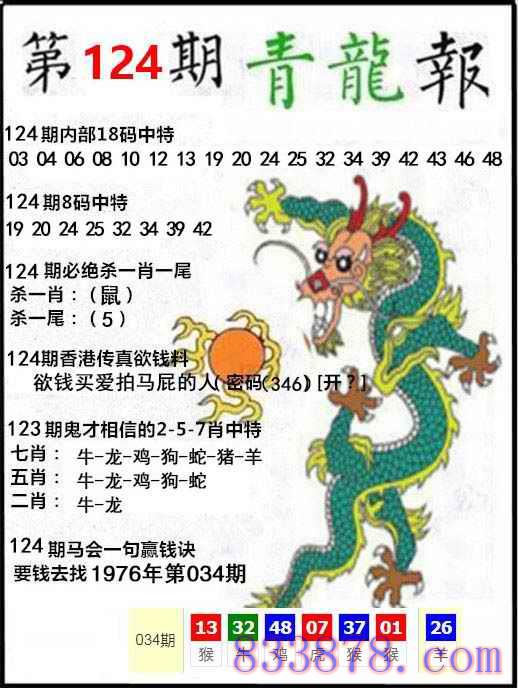 第124期青龍報
124期内部18码中特
03 04 06 08 10 12 13 19 20 24 25 32 34 39 42 43 46 48
124期8码中特
19 20 24 25 32 34 39 42
124期必绝杀一肖一尾
杀一肖：(鼠)
杀一尾：(5)
124期香港传真欲钱料
欲钱买爱拍马屁的人(密码(346)[开?]
123期鬼才相信的2-5-7肖中特
七肖： 牛-龙-鸡-狗-蛇-猪-羊
五肖： 牛-龙-鸡-狗-蛇
二肖： 牛-龙
124期马会一句赢钱诀
要钱去找1976年第034期
034期 13 32 48 07 37 01 26
猴 牛 鸡 虎 猴 猴 羊
833878.com